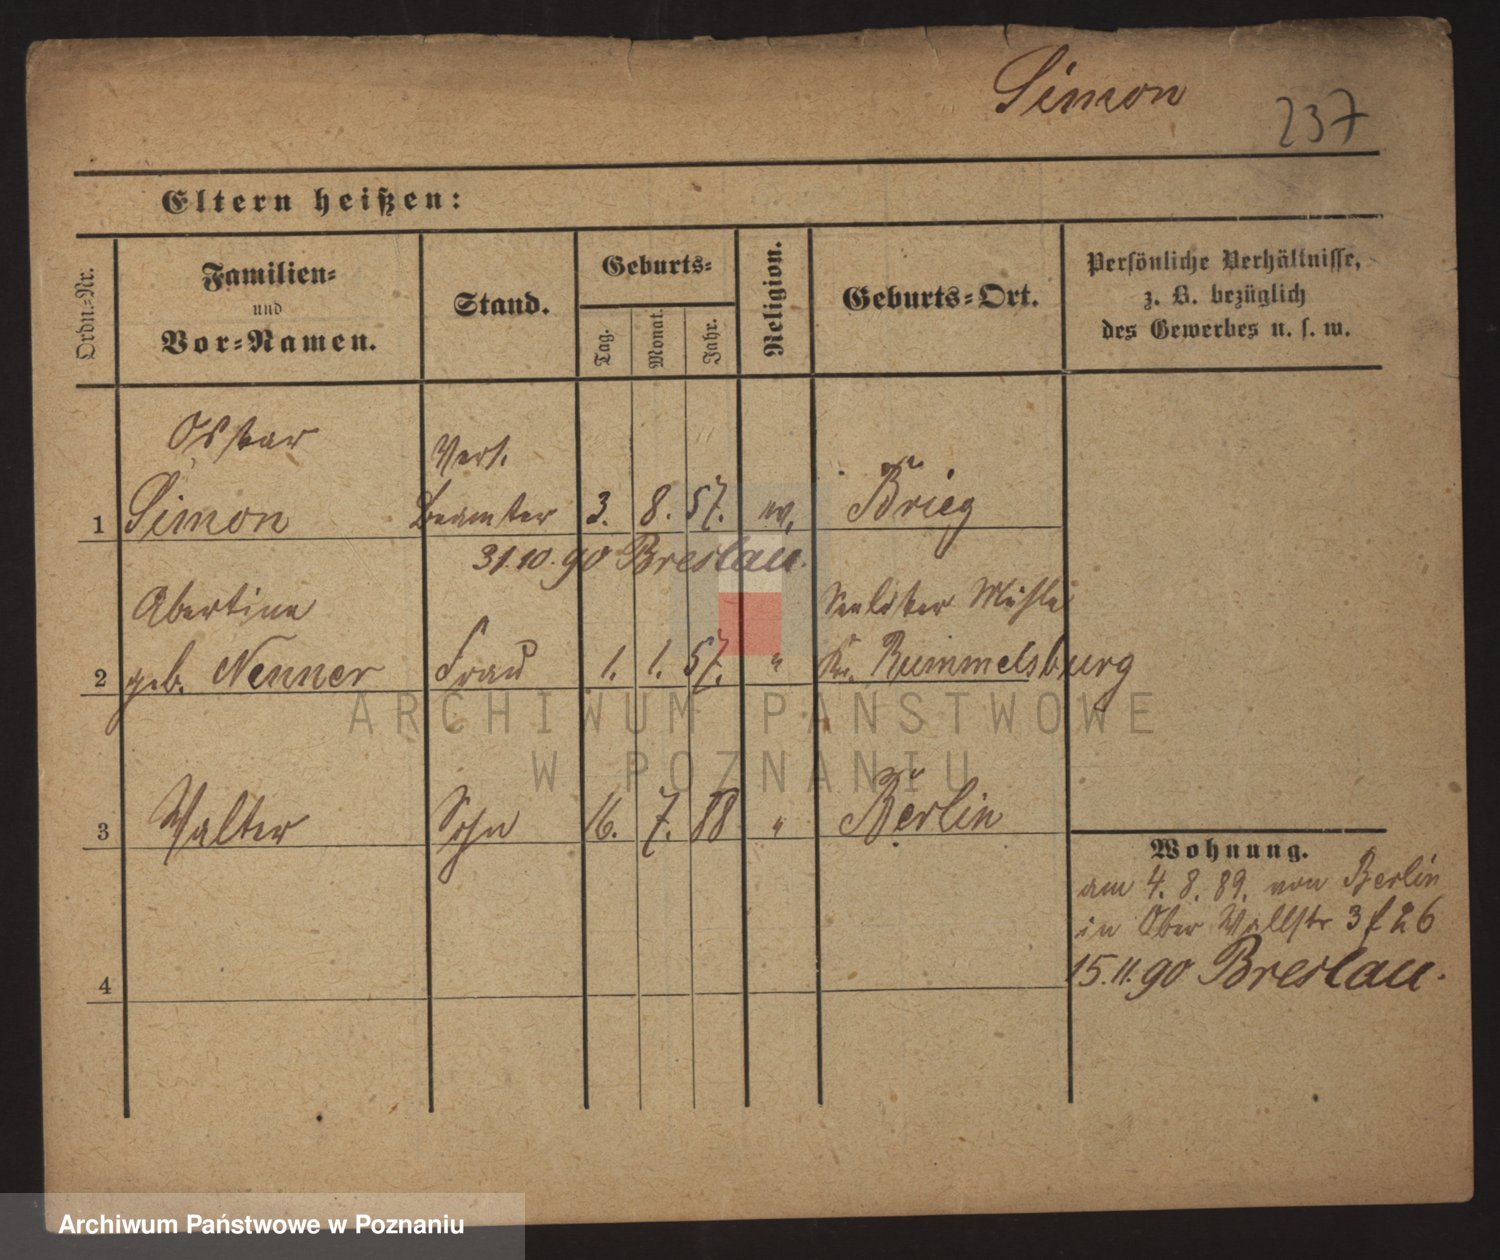 Simon
237
Eltern heißen:
Ordn.-Nr.
Familien-
und
Vor-Namen.
Stand.
Geburts-
Tag.
Monat.
Jahr.
Religion.
Geburts-Ort.
Persönliche Verhältnisse,
z. B. bezüglich
des Gewerbes u. s. w.
Oskar
Vers.
1 Simon Beamter 3. 8. 57. Brieg
31.10.90 Breslau.
Abertine Mühle
2 geb. Nenner Frau 1. 1. 57. " Kr. Rummelsburg
3 Walter Sohn 16. 7. 88 " Berlin
Wohnung.
am 4. 8. 89. von Berlin
in Ober Wallstr 3
4
15.11.90 Breslau.
ARCHIWUM PAŃSTWOWE
W POZNANIU
Archiwum Państwowe w Poznaniu